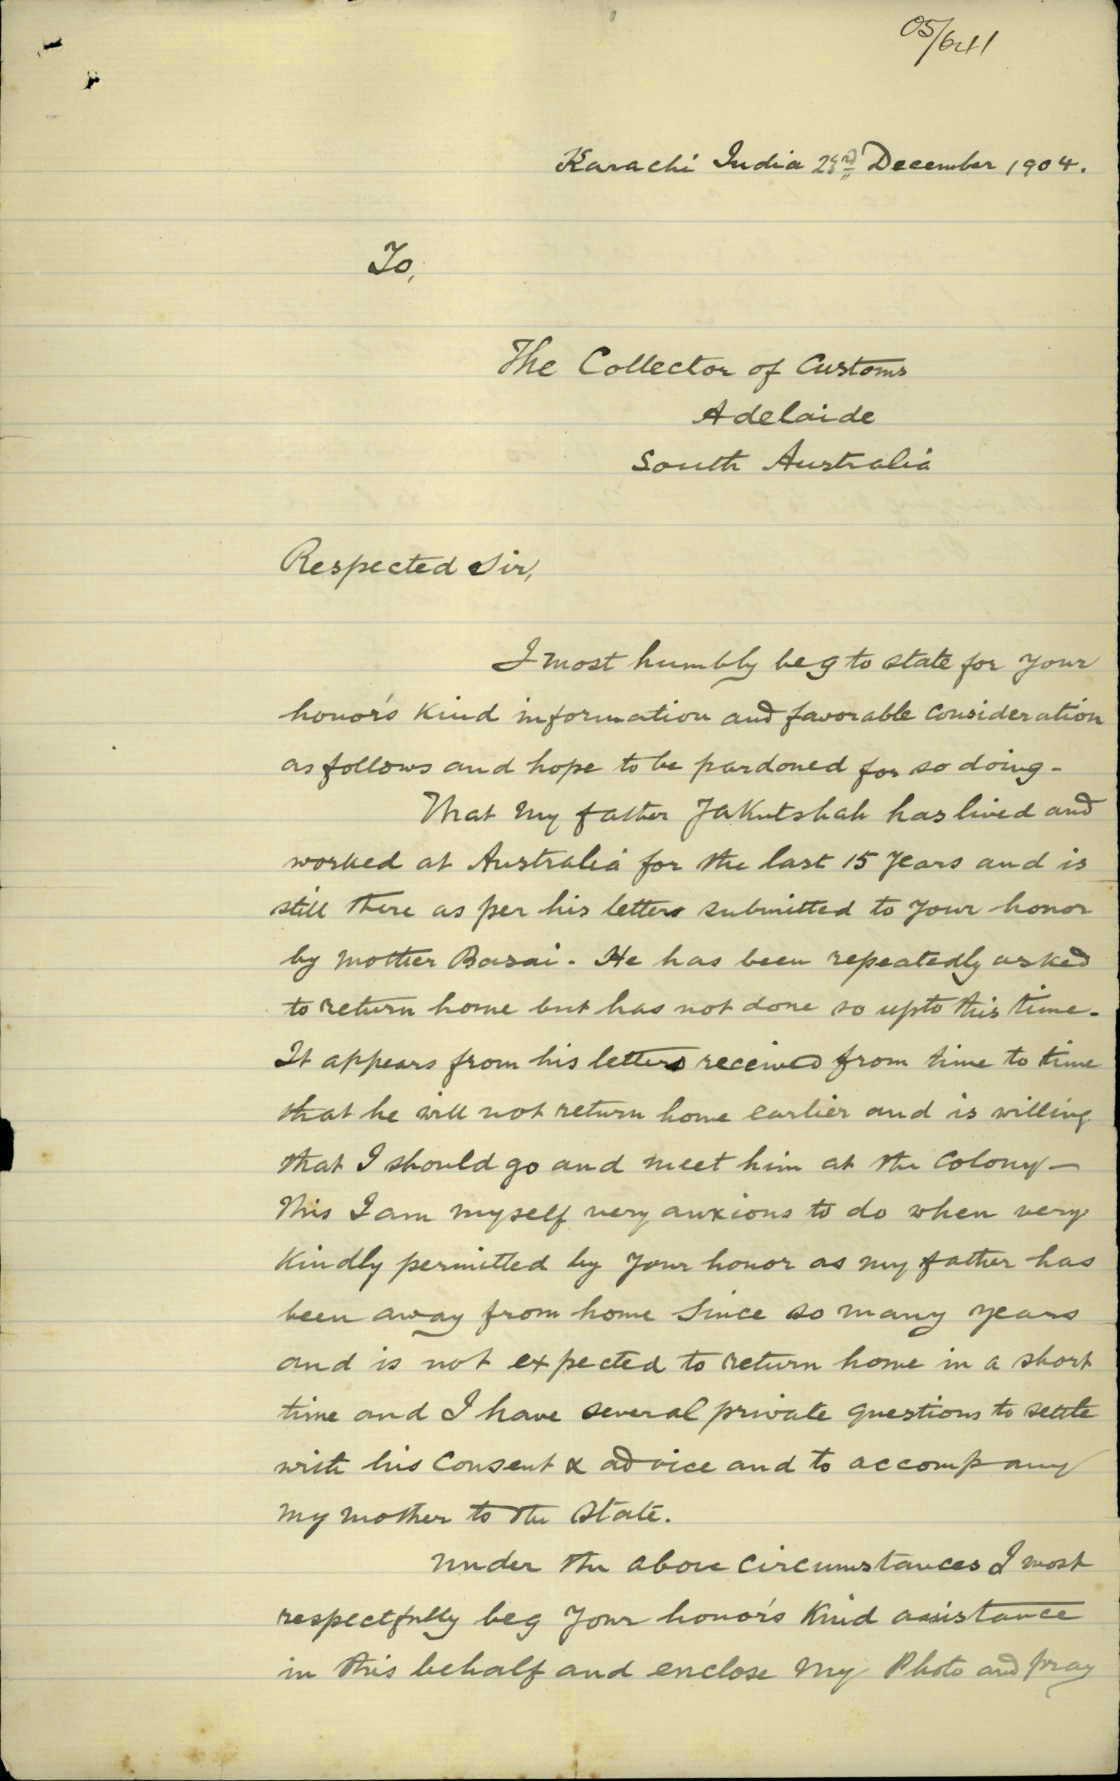 05/641
Karachi India 23rd December 1904.
To,
The Collector of Customs
Adelaide
South Australia
Respected Sir,
I most humbly beg to state for your
honor's kind information and favorable consideration
as follows and hope to be pardoned for so doing-
That my father Jakutshah has lived and
worked at Australia for the last 15 years and is
still there as per his letters submitted to your honor
by mother Basai. He has been repeatedly asked
to return home but has not done so upto this time.
It appears from his letters received from time to time
that he will not return home earlier and is willing
that I should go and meet him at the Colony-
This I am myself very anxious to do when very
kindly permitted by your honor as my father has
been away from home since so many years
and is not expected to return home in a short
time and I have several private questions to settle
with his consent & advice and to accompany
my mother to the state.
Under the above circumstances I most
respectfully beg your honor's kind assistance
in this behalf and enclose my Photo and pray